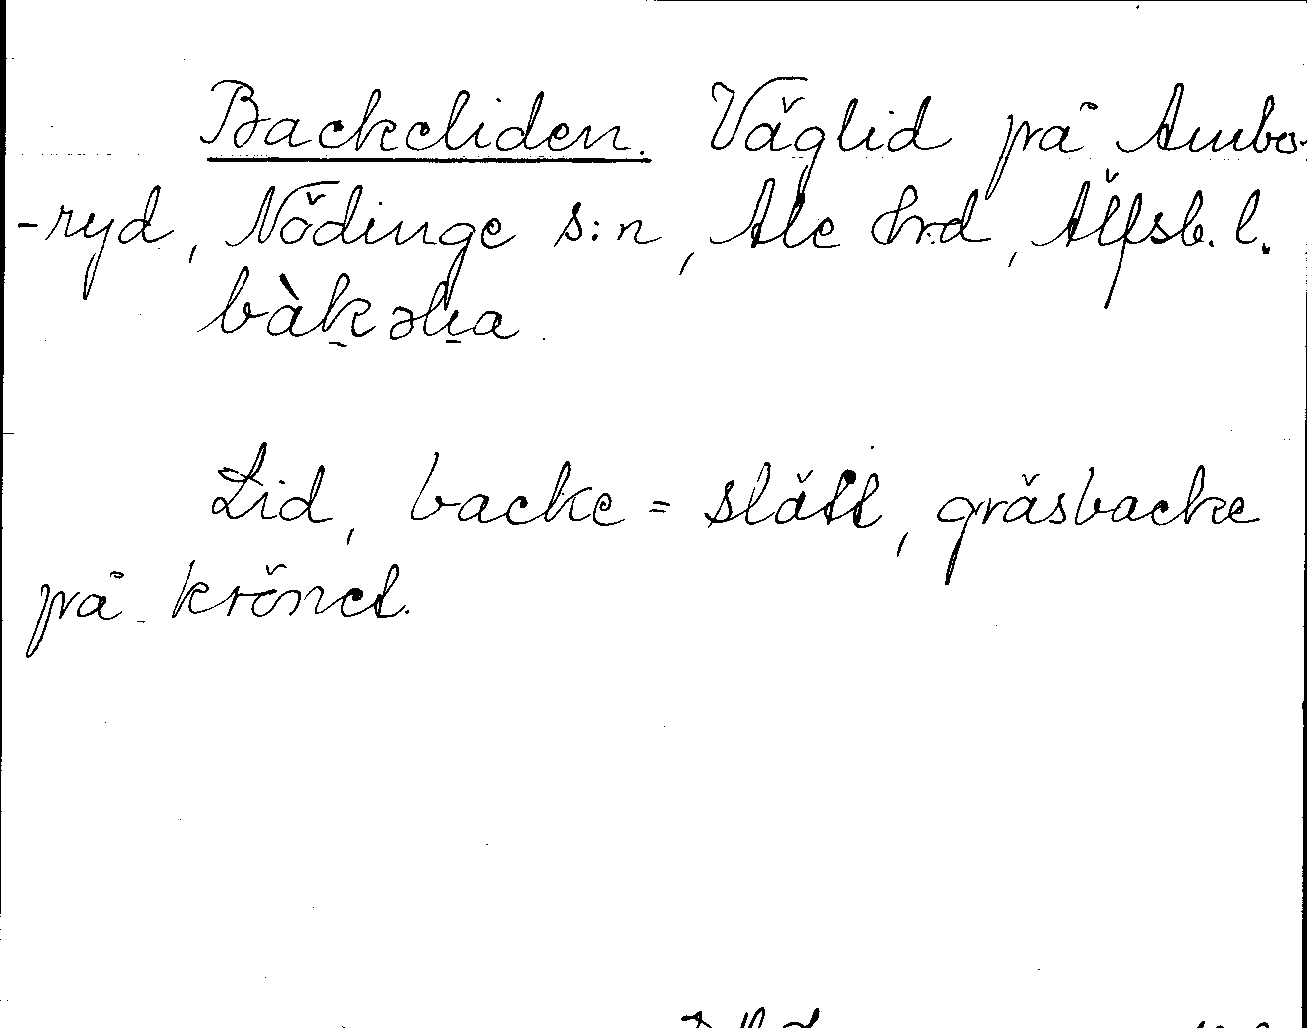 Backeliden. Väglid på Ambo-
-ryd, Nödinge s:n, Ale hrd, Älfsb. l.
bàkəlia
Lid, backe = slätt, gräsbacke
på krönet.